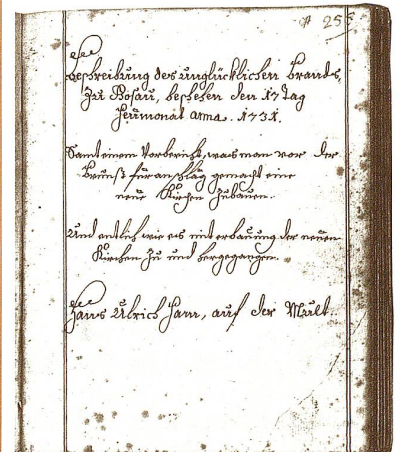 25
Beschreibung des unglücklichen Brands,
Zu beschehen den 17 Tag
Heümonat anno. 1731.
Samt einem Vorbericht, was man vor der
Brunst für anschläg gemacht eine
neüe Kirchen Zubauen.
Und entlich wie es mit erbauung der neüen
Kirchen Zu und hergegangen.
Hans Ulrich auf der